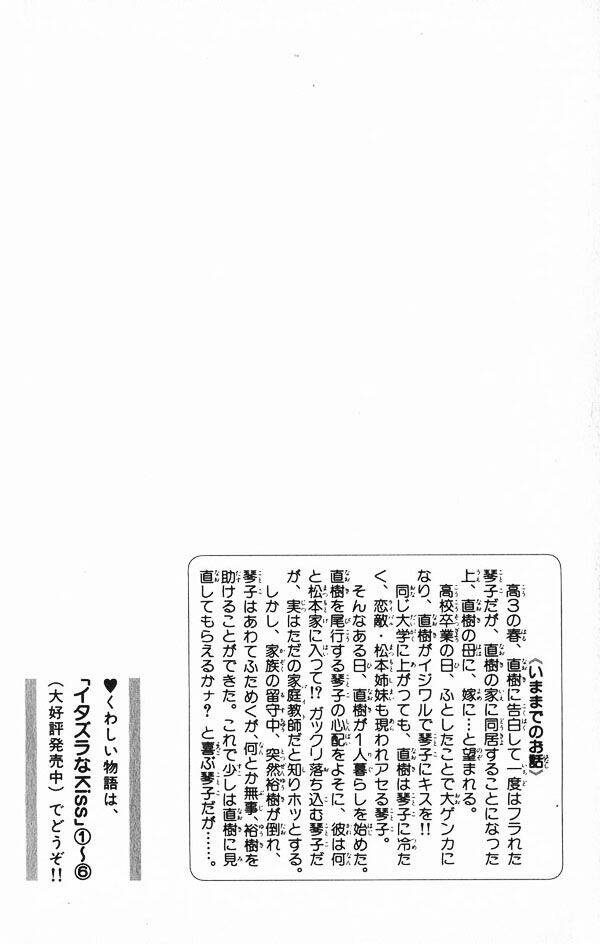 《いままでのお話》
高3の春、直樹に告白して一度はフラれた
琴子だが、直樹の家に同居することになった
上、直樹の母に、嫁に…と望まれる。
高校卒業の日、ふとしたことで大ゲンカに
なり、直樹がイジワルで琴子にキスを!!
同じ大学に上がっても、直樹は琴子に冷た
く、恋敵・松本姉妹も現われアセる琴子。
そんなある日、直樹が1人暮らしを始めた。
直樹を尾行する琴子の心配をよそに、彼は何
と松本家に入って!? ガックリ落ち込む琴子だ
が、実はただの家庭教師だと知りホッとする。
しかし、家族の留守中、突然裕樹が倒れ、
琴子はあわてふためくが、何とか無事、裕樹を
助けることができた。これで少しは直樹に見
直してもらえるかナ? と喜ぶ琴子だが……。
♥くわしい物語は、
「イタズラなKiss」①〜⑥
(大好評発売中)でどうぞ!!